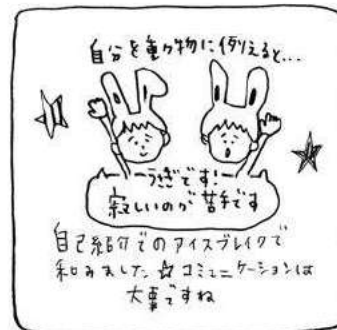 自分を動物に例えると...
うさぎです!
寂しいのが苦手です
自己紹介でのアイスブレイクで
和みました☆コミュニケーションは
大事ですね